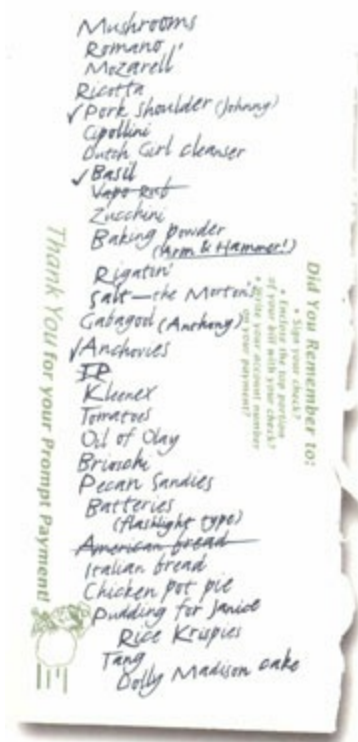 Mushrooms
Romano
Mozarell'
Ricotta
✓Pork shoulder (Johnny)
Cipollini
Dutch Girl cleanser
✓Basil
Vapo Rub
Zucchini
Baking powder
(Arm & Hammer!)
Rigaton'
Salt—the Morton's
Gabagool (Anthony)
✓Anchovies
TP
Kleenex
Tomatoes
Oil of Olay
Brioschi
Pecan Sandies
Batteries
(flashlight type)
American bread
Italian bread
Chicken pot pie
Pudding for Janice
Rice Krispies
Tang
Dolly Madison cake
Thank You for your Prompt Payment!
Did You Remember to:
• Sign your check?
• Enclose the top portion
of your bill with your check?
• Write your account number
on your payment?